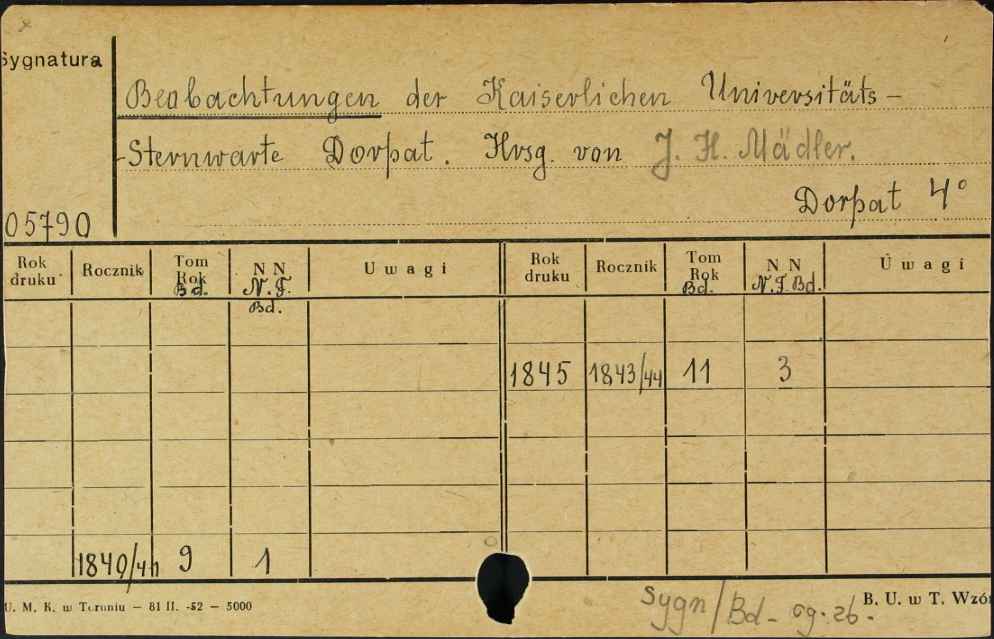 Sygnatura
Beobachtungen der Kaiserlichen Universitäts-
-Sternwarte Dorpat. Hrsg. von J. H. Mädler.
Dorpat 4°
05790
Rok druku Rocznik Tom Rok Bd. N N N. F. Bd. Uwagi Rok druku Rocznik Tom Rok Bd. N N N. F. Bd. Uwagi
1845 1843/44 11 3
1840/41 9 1
U. M. K. w Toruniu — 81 II. -52 — 5000
Sygn/Bd - og. zb. B. U. w T. Wzór